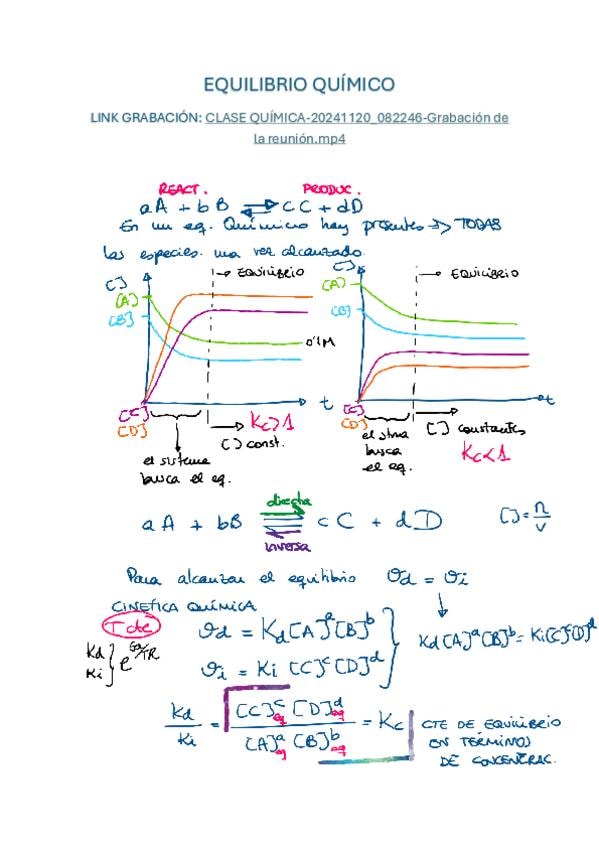 EQUILIBRIO QUÍMICO
LINK GRABACIÓN: CLASE QUÍMICA-20241120_082246-Grabación de
la reunión.mp4
REACT. PRODUC.
aA + bB ⇌ cC + dD
En un eq. Químico hay presentes ⇒ TODAS
las especies una vez alcanzado.
[] → EQUILIBRIO
[A]
[B]
0'1M
t
[C]
[D]
el sistema
busca el eq.
→ Kc>1
[] const.
[] → EQUILIBRIO
[A]
[B]
t
[C]
[D]
el stma
busca
el eq.
[] constantes
Kc<1
directa
aA + bB ⇌ cC + dD [] = n/V
inversa
Para alcanzar el equilibrio vd = vi
CINETICA QUÍMICA
T cte
Kd
Ki } e^Ea/TR
vd = Kd [A]^a [B]^b
vi = Ki [C]^c [D]^d
Kd [A]^a [B]^b = Ki [C]^c [D]^d
Kd/Ki = [C]^c eq [D]^d eq / [A]^a eq [B]^b eq = Kc
CTE DE EQUILIBRIO
EN TÉRMINOS
DE CONCENTRAC.